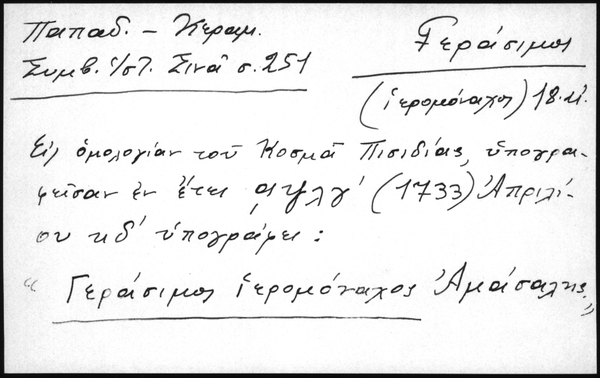 Παπαδ. – Κεραμ.
Συμβ. ἱστ. Σινᾶ σ. 251
Γεράσιμος
(ἱερομόναχος) 18. αἰ.
Εἰς ὁμολογίαν τοῦ Κοσμᾶ Πισιδίας, ὑπογρα-
φεῖσαν ἐν ἔτει αψλγ' (1733) Ἀπριλί-
ου κδ' ὑπογράφει:
“Γεράσιμος ἱερομόναχος